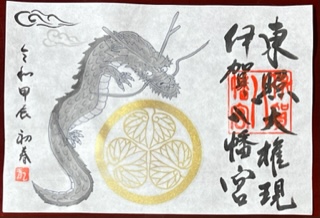 東照大権現
伊賀八幡宮
令和甲辰 初春